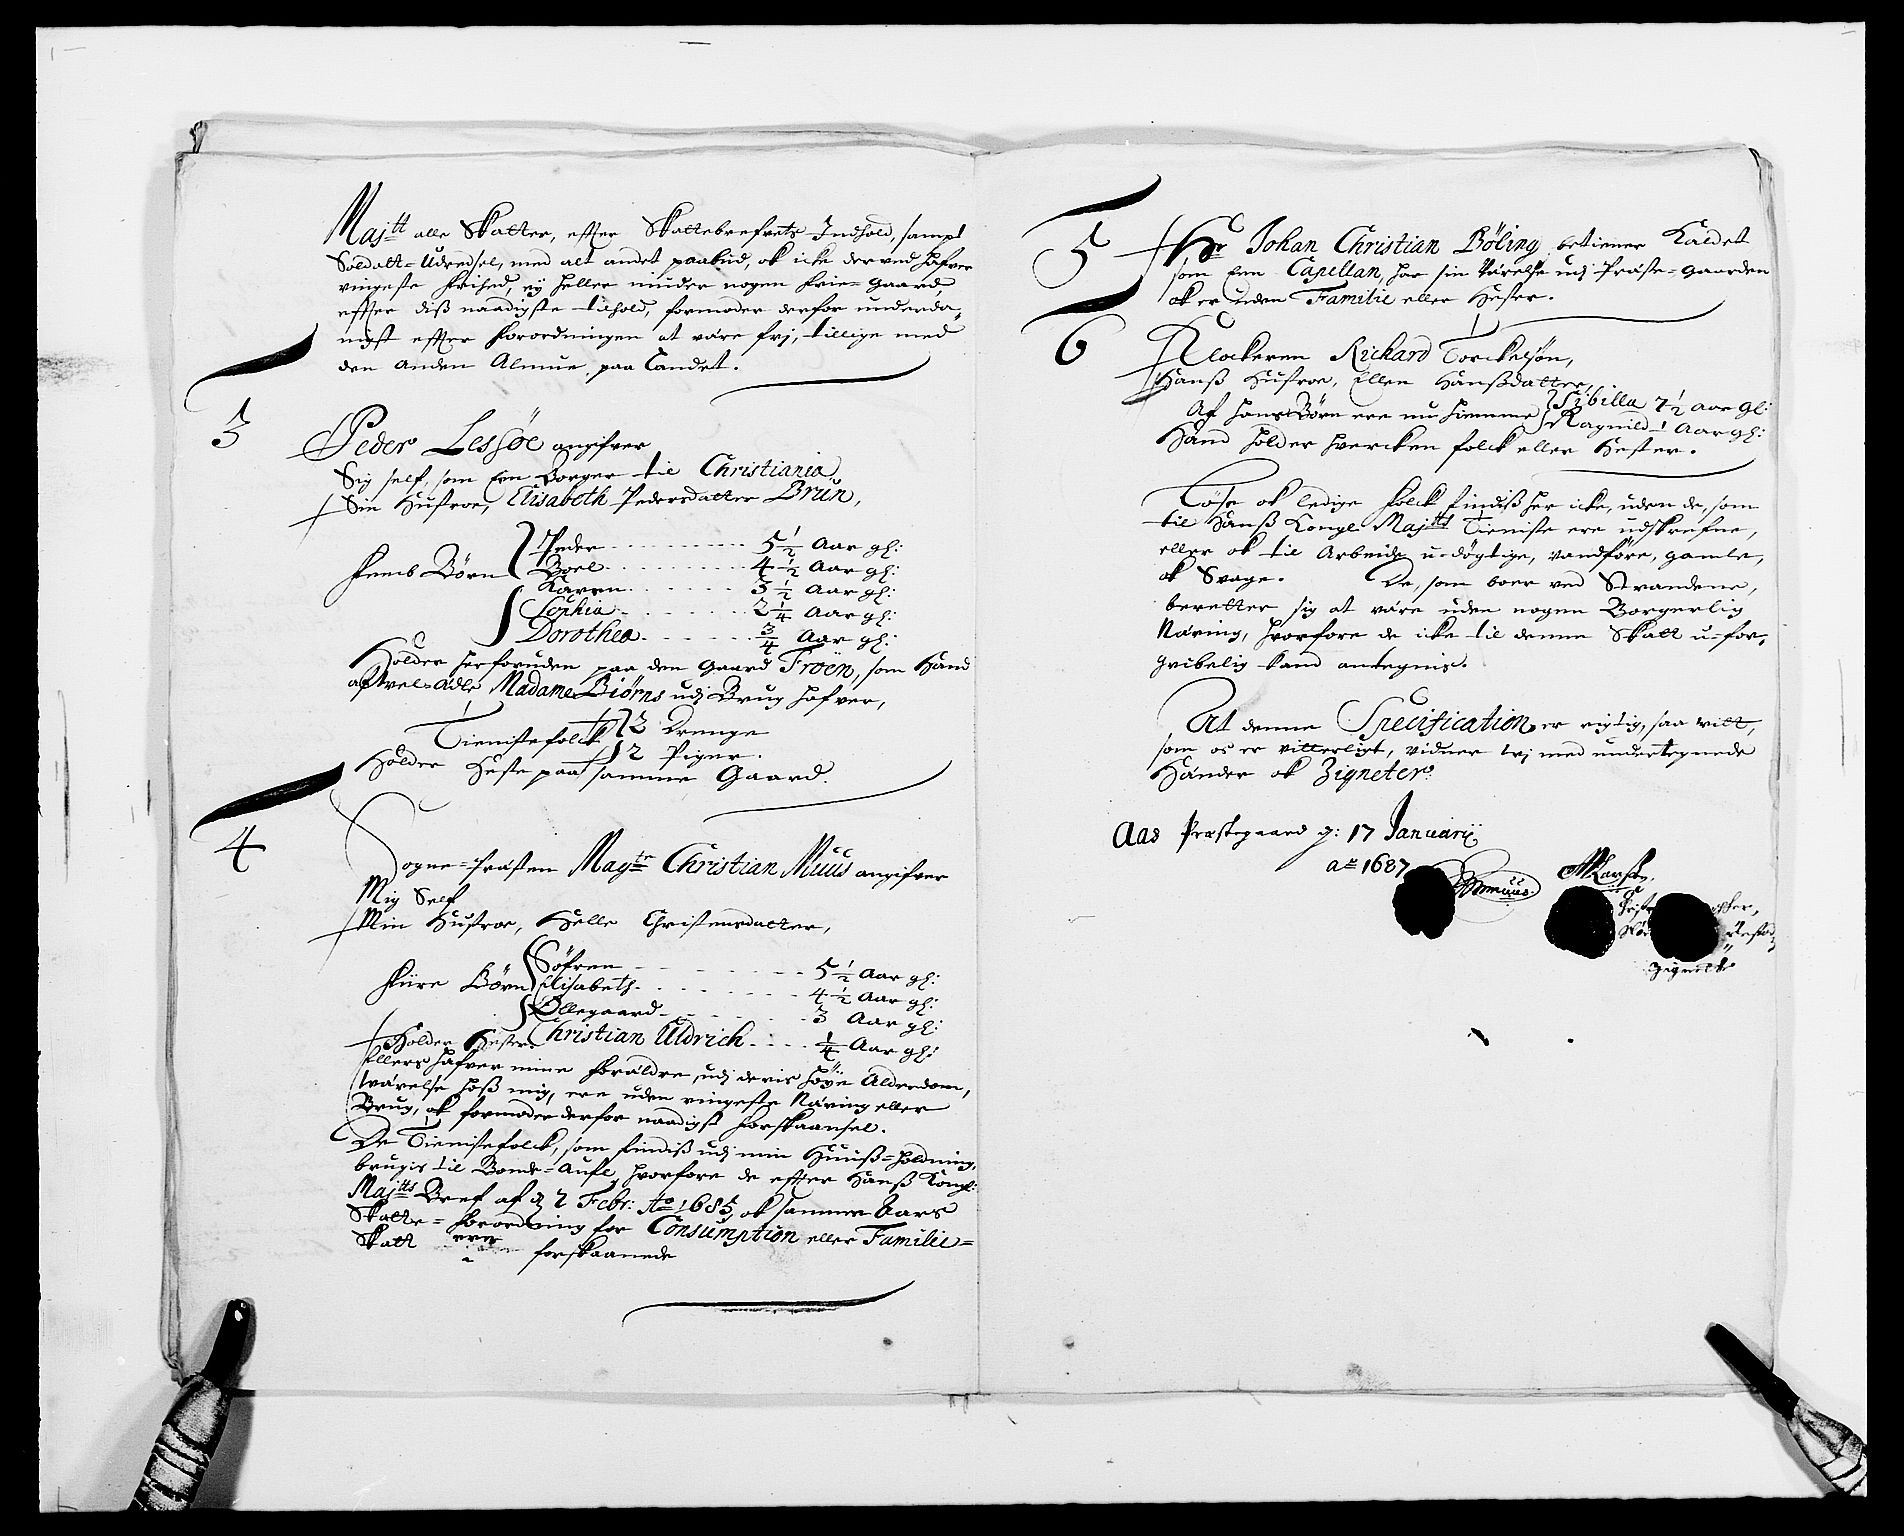 Majtt alle Skatter, effter Skattebrefvets Indhold, sampt
Soldatt-Udredsel, med alt andet paabud, ok icke derved hafver
ringeste frihed, ej heller niuder nogen frie-gaard,
effter diß naadigste tilhold, formoder derfor underda-
nigst effter forordningen at være frj, tillige med
den anden Almue paa Landet.
3
Peder Lessøe angifver
Sig self, som Een Borger til Christiania,
Sin Hustroe, Elisabeth Pedersdatter Brun,
Peder 5 1/2 Aar gl:
Femb Børn Boel 4 1/2 Aar gl:
Karen 3 1/2 Aar gl:
Sophia 2 1/4 Aar gl:
Dorothea 3/4 Aar gl:
Holder herforuden paa den Gaard Froën, som Hand
aff Vel-Ädle Madame Biørns udj Brug hafver,
Tienistefolck 2 Drenge
2 Piger.
Holder Heste paa samme Gaard.
4
Sogne-Præsten Magtr Christian Muus angifver
Mig Self
Min Hustroe, Helle Christensdatter,
Söfren 5 1/2 Aar gl:
Fiire Børn Elisabeth 4 1/2 Aar gl:
Øllegaard 3 Aar gl:
Holder Hester. Christian Uldrich 1/4 Aar gl:
Ellers hafver mine Forældre, udj deris høye Alderdom,
Wärelse hoß mig, ere uden ringeste Näring eller
Brug, ok formoder derfor naadigst forskaansel.
De Tienistefolck, som findiß udj min Huuß-holdning,
brugis til Bonde-Aufl, hvorfore de effter Hanß Kongl:
Majtts Bref af d 7 Febr: Ao 1685, ok samme Aars
Skatte-forordning for Consumption eller Familie-
Skatt ere forskaanede
5
Hr Johan Christian Böling betiener Kaldet
som Een Capellan, har sin Värelse udj Præste-gaarden
ok er uden Familie eller Hester.
6
Klockeren Richard Torckelsøn,
Hanß Hustroe, Ellen Hanßdatter,
Af hans Børn ere nu hiemme Sibilla 7 1/2 Aar gl:
Ragnild 1 Aar gl:
Hand holder hvercken folck eller Hester.
Löse ok ledige folck findiß her icke, uden de, som
til Hanß Kongl Majtts Tieniste ere udskrefne,
eller ok til Arbeide u-dögtige, vandföre, gamle,
ok Svage. De, som boer ved Strandene,
beretter sig at väre uden nogen Borgerlig
Näring, hvorfore de icke til denne Skatt u-for-
gribelig kand antegnis.
At denne Specification er rigtig, saa vitt,
som os er vitterligt, vidner wj med undertegnede
Händer ok Zigneter.
Aas Præstegaard d: 17 Januarii
ao 1687
CMMuus.